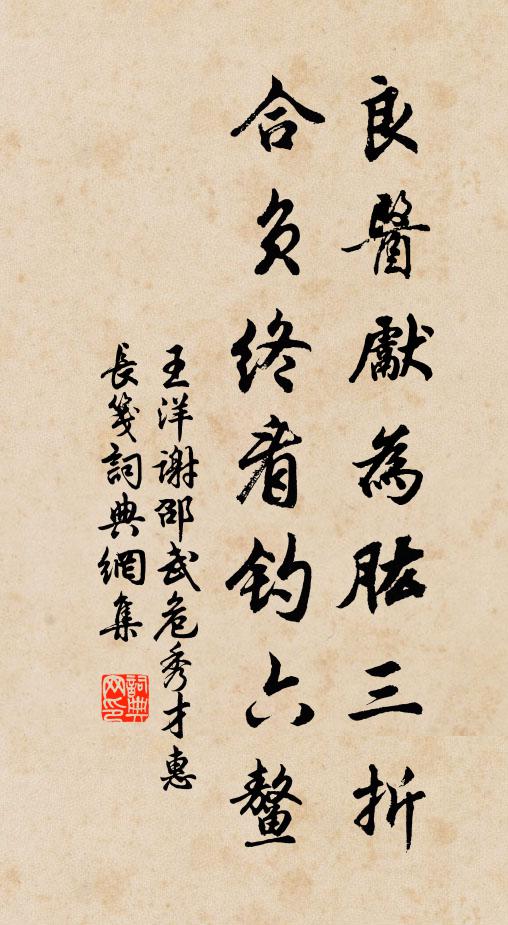 良醫獻為肱三折
合負終看釣六鰲
王洋謝邵武危秀才惠
長箋詞典網集
詞典
网印